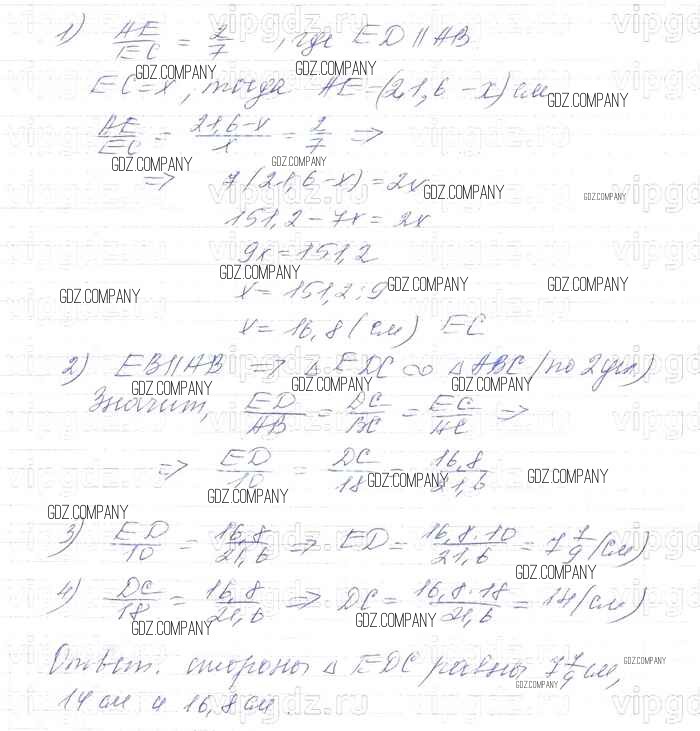 1) AE/EC = 2/7, где ED ∥ AB
EC = x, тогда AE = (21,6 - x) см
AE/EC = (21,6 - x)/x = 2/7 =>
=> 7(21,6 - x) = 2x
151,2 - 7x = 2x
9x = 151,2
x = 151,2 : 9
x = 16,8 (см) EC
2) EB ∥ AB => △EDC ∞ △ABC (по 2 угл)
Значит, ED/AB = DC/BC = EC/AC =>
=> ED/10 = DC/18 = 16,8/21,6
3) ED/10 = 16,8/21,6 => ED = 16,8·10/21,6 = 7 7/9 (см)
4) DC/18 = 16,8/21,6 => DC = 16,8·18/21,6 = 14 (см)
Ответ. стороны △ EDC равны 7 7/9 см,
14 см и 16,8 см.
GDZ.COMPANY
vipgdz.ru